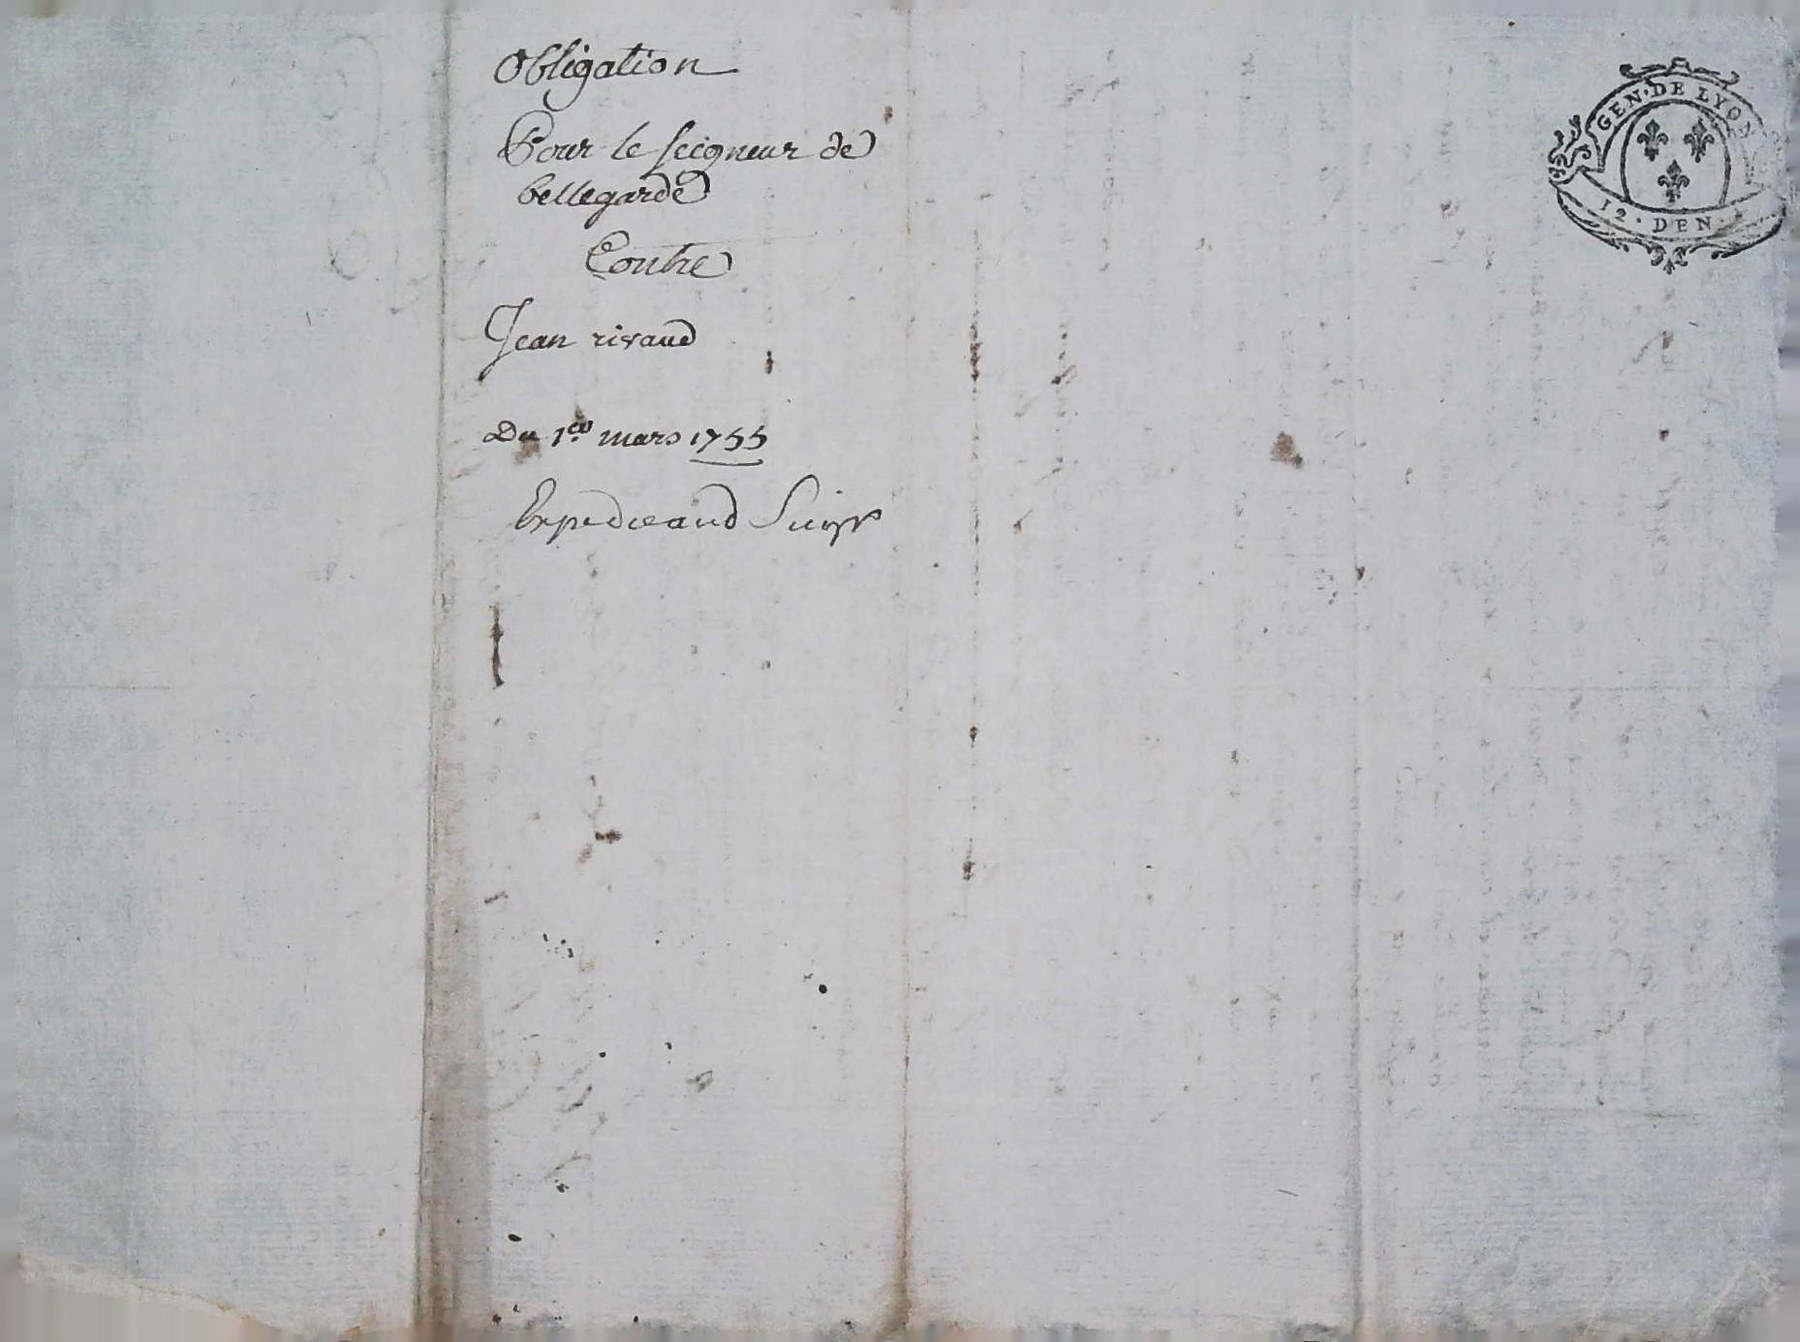 Obligation
Pour le seigneur de
bellegarde
Contre
Jean rivaud
Du 1er mars 1755
GEN·DE LYON
12·DEN·